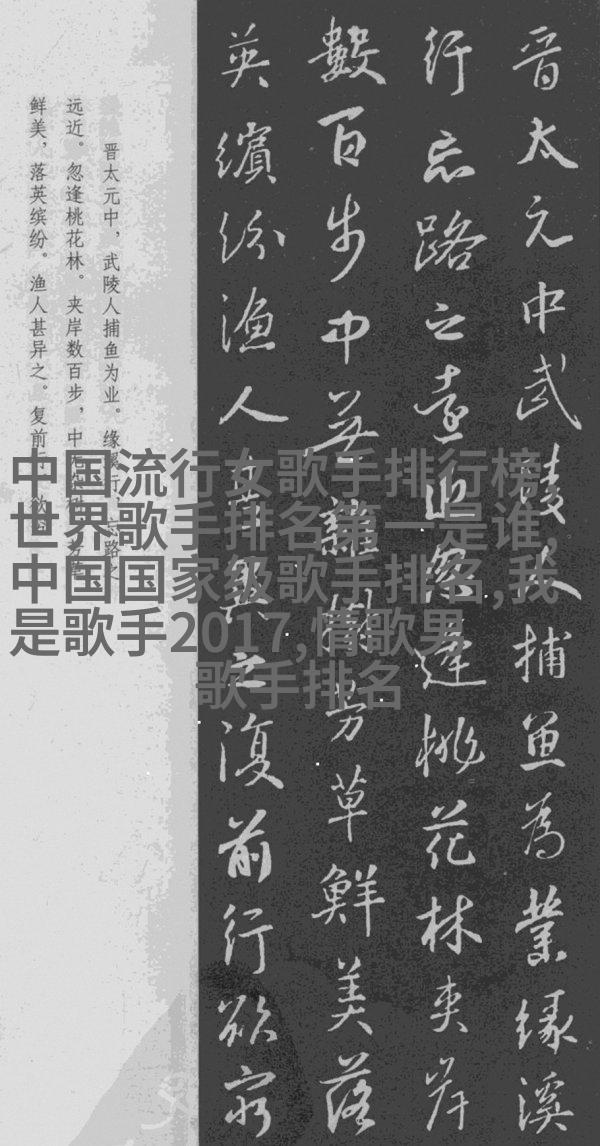 晉太元中武陵人捕魚為業緣溪
行忘路之遠近忽逢桃花林夾岸
數百步中無雜樹芳草鮮美落
英繽紛漁人甚異之復前行欲窮
晋太元中，武陵人捕鱼为业。缘溪行，忘路之
远近。忽逢桃花林。夹岸数百步，中
鲜美，落英缤纷。渔人甚异之。复前
中国流行女歌手排行榜,
世界歌手排名第一是谁,
中国国家级歌手排名,我
是歌手2017,情歌男
歌手排名